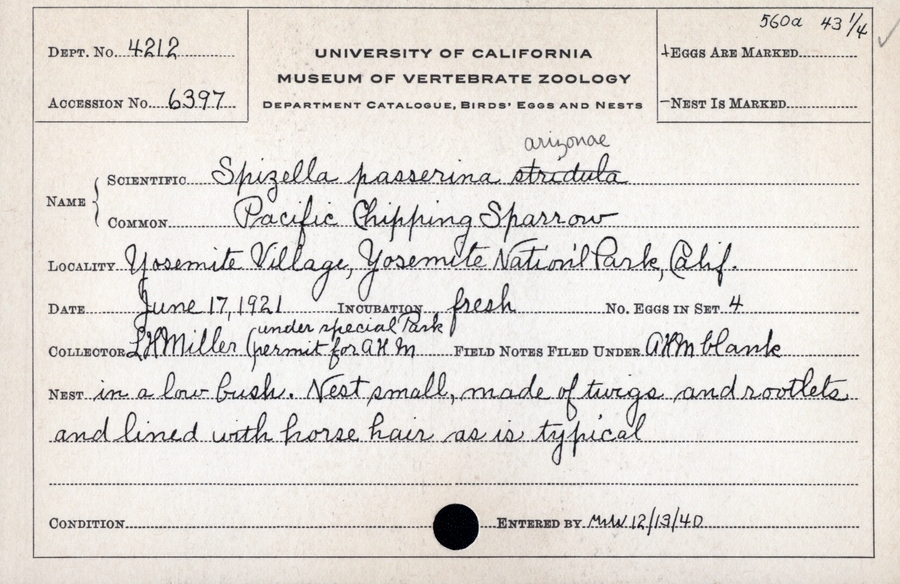 560a 43 1/4 ✓
DEPT. NO. 4212
UNIVERSITY OF CALIFORNIA
+EGGS ARE MARKED
MUSEUM OF VERTEBRATE ZOOLOGY
ACCESSION NO. 6397
DEPARTMENT CATALOGUE, BIRDS' EGGS AND NESTS
-NEST IS MARKED
arizonae
NAME { SCIENTIFIC Spizella passerina stridula
COMMON Pacific Chipping Sparrow
LOCALITY Yosemite Village, Yosemite Nation'l Park, Calif.
DATE June 17, 1921 INCUBATION fresh NO. EGGS IN SET 4
(under special Park
COLLECTOR LHMiller permit for AHM FIELD NOTES FILED UNDER AHM blank
NEST in a low bush. Nest small, made of twigs and rootlets
and lined with horse hair as is typical
CONDITION ENTERED BY MWW 12/13/40